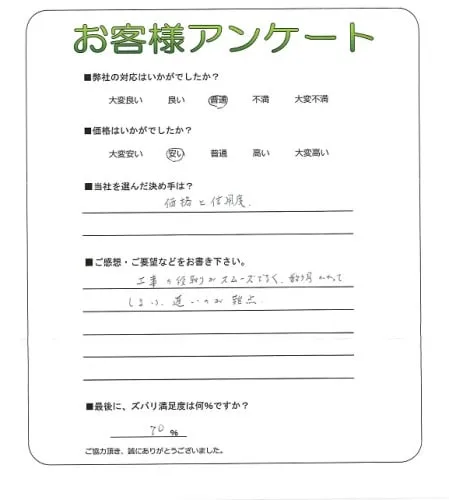 お客様アンケート
■弊社の対応はいかがでしたか？
大変良い 良い 普通 不満 大変不満
■価格はいかがでしたか？
大変安い 安い 普通 高い 大変高い
■当社を選んだ決め手は？
価格と信用度.
■ご感想・ご要望などをお書き下さい。
工事の段取りがスムーズでなく、
しまい、遅いのが難点
■最後に、ズバリ満足度は何%ですか？
70 %
ご協力頂き、誠にありがとうございました。